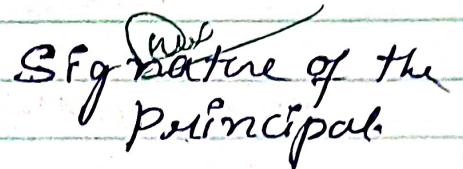 Signature of the
Principal.